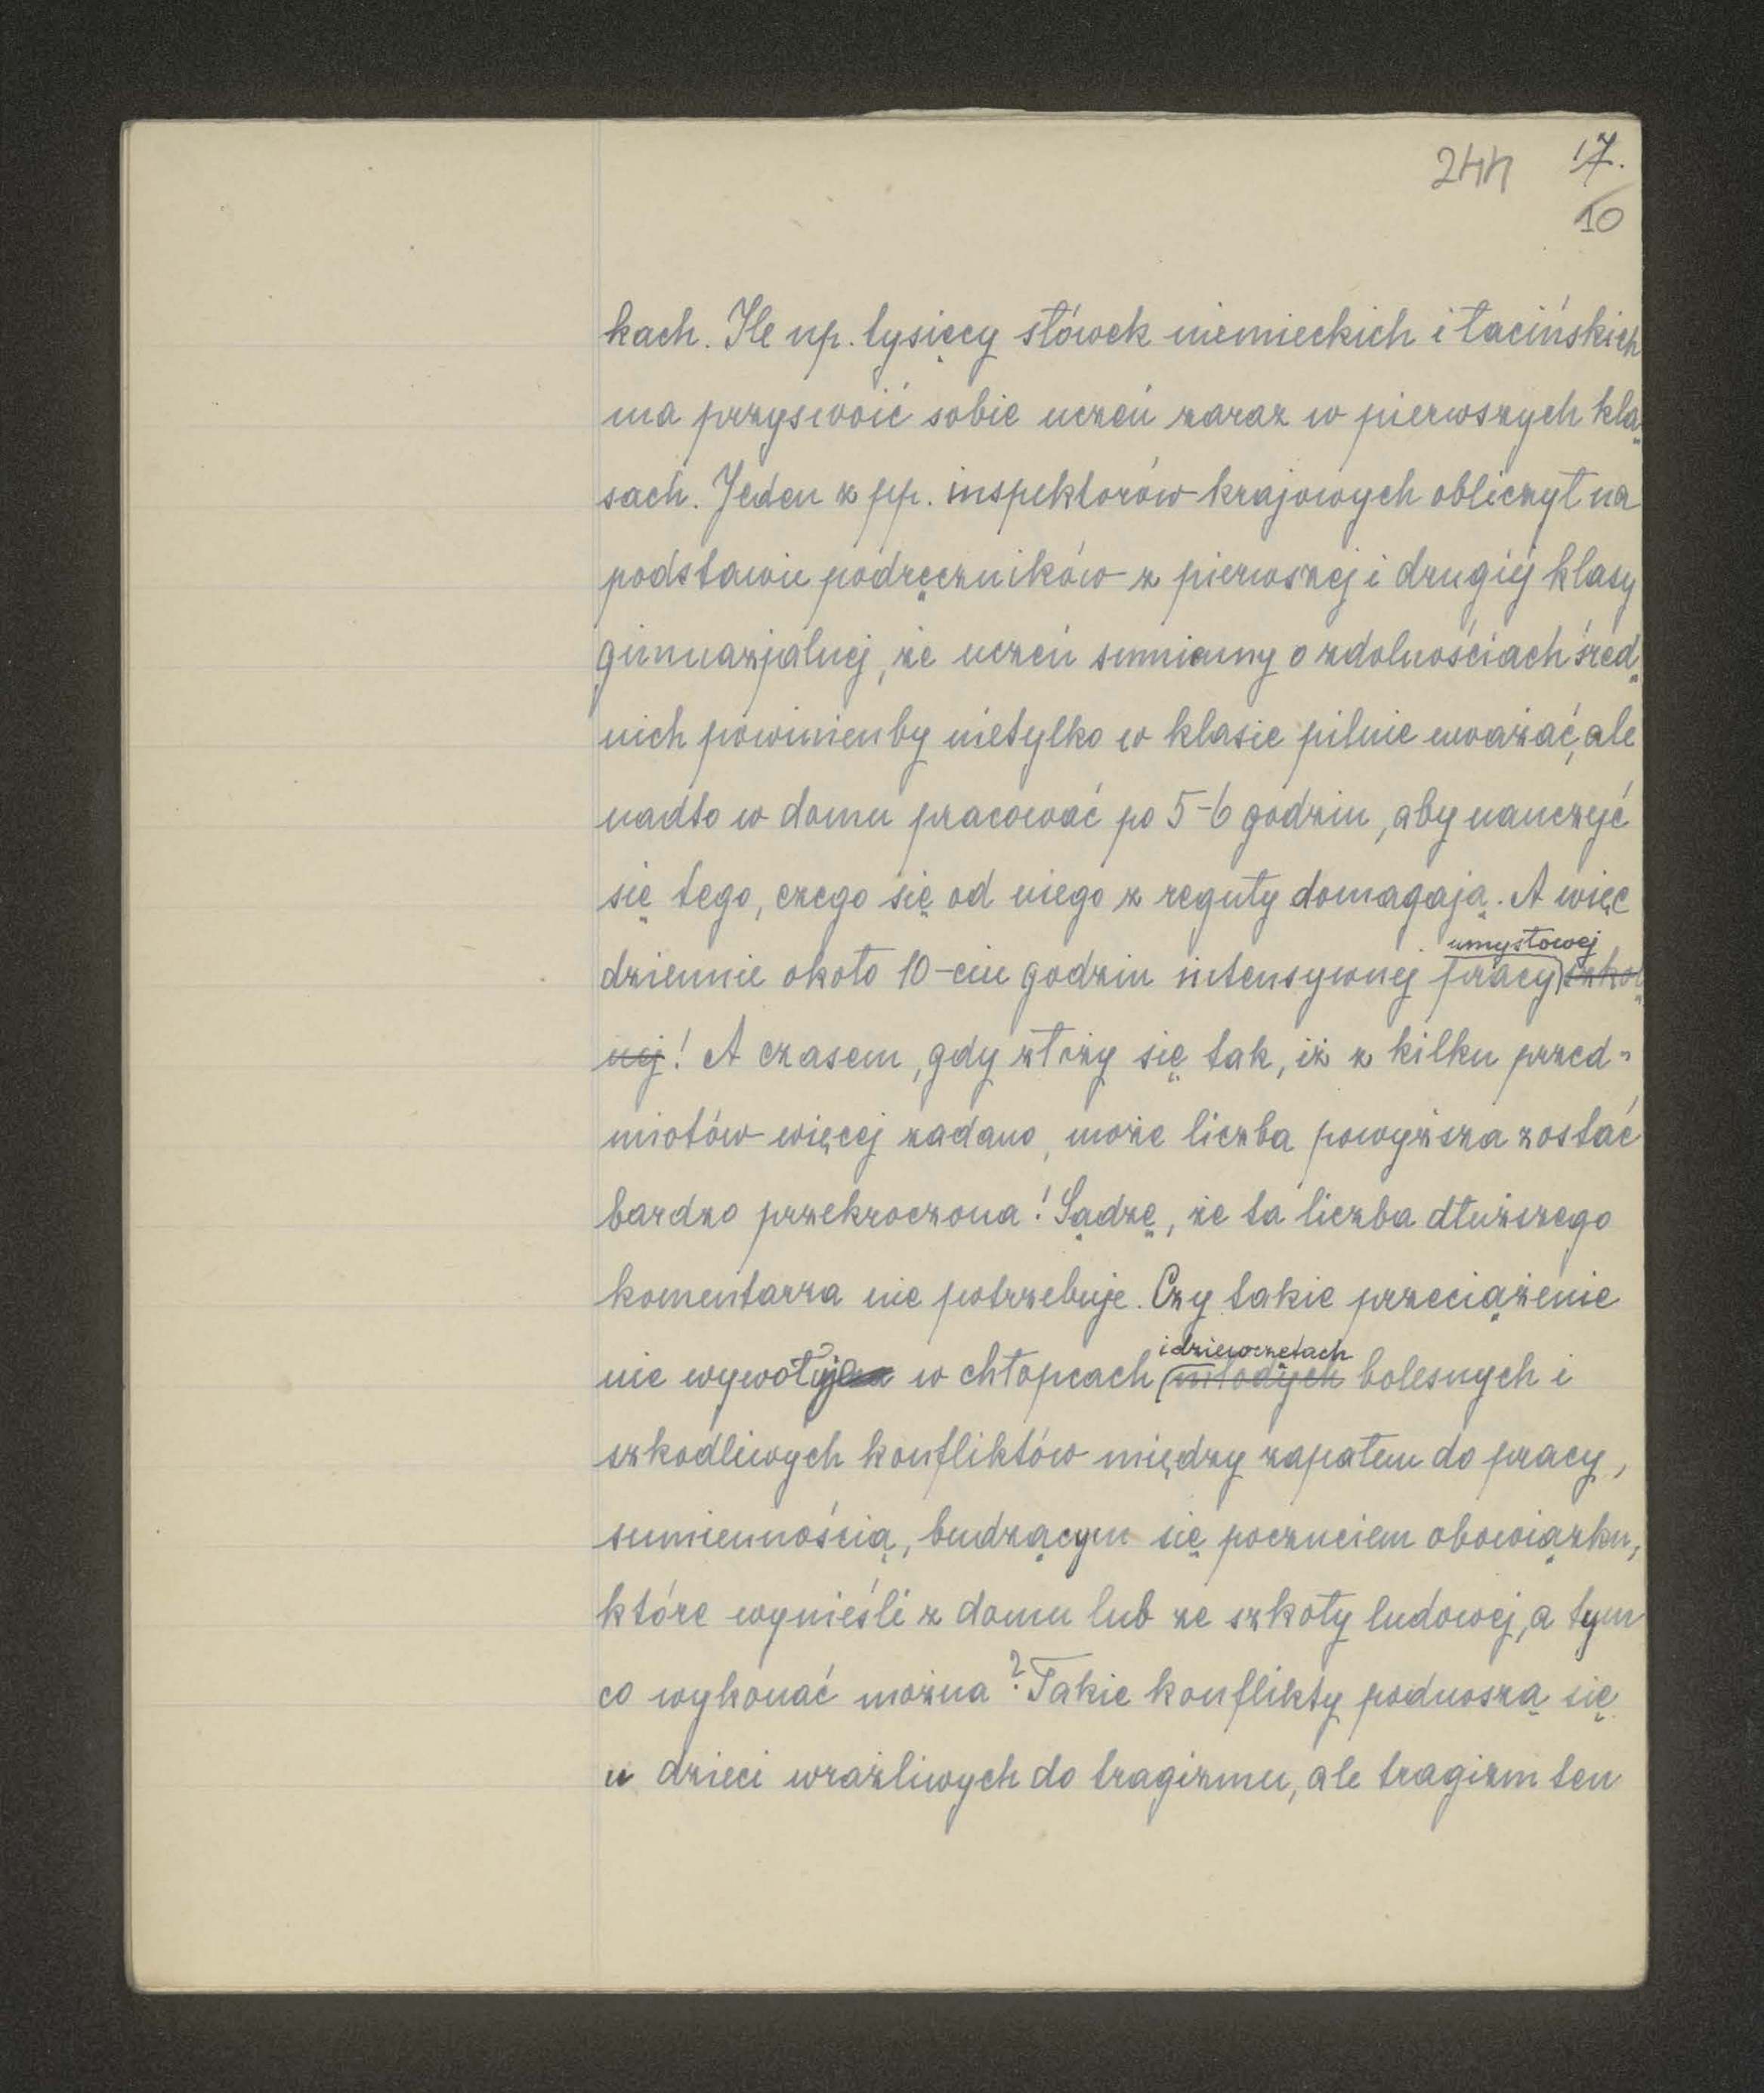 244 17.
10
kach. Ile np. tysięcy słówek niemieckich i łacińskich
ma przyswoić sobie uczeń zaraz w pierwszych kla
sach. Jeden z pp. inspektorów krajowych obliczył na
podstawie podręczników z pierwszej i drugiéj klasy
gimnazjalnej, że uczeń sumienny o zdolnościach śred
nich powinienby nietylko w klasie pilnie uważać, ale
nadto w domu pracować po 5-6 godzin, aby nauczyć
się tego, czego się od niego z reguły domagają. A więc
umysłowej
dziennie około 10-ciu godzin intensywnej pracy szkol
nej! A czasem, gdy złoży się tak, iż z kilku przed-
miotów więcej zadano, może liczba powyższa zostać
bardzo przekroczona! Sądzę, że ta liczba dłuższego
komentarza nie potrzebuje. Czy takie przeciążenie
i dziewczętach
nie wywołuje w chłopcach młodych bolesnych i
szkodliwych konfliktów między zapałem do pracy,
sumiennością, budzącym się poczuciem obowiązku,
które wynieśli z domu lub ze szkoły ludowej, a tym
co wykonać można? Takie konflikty podnoszą się
u dzieci wrażliwych do tragizmu, ale tragizm ten